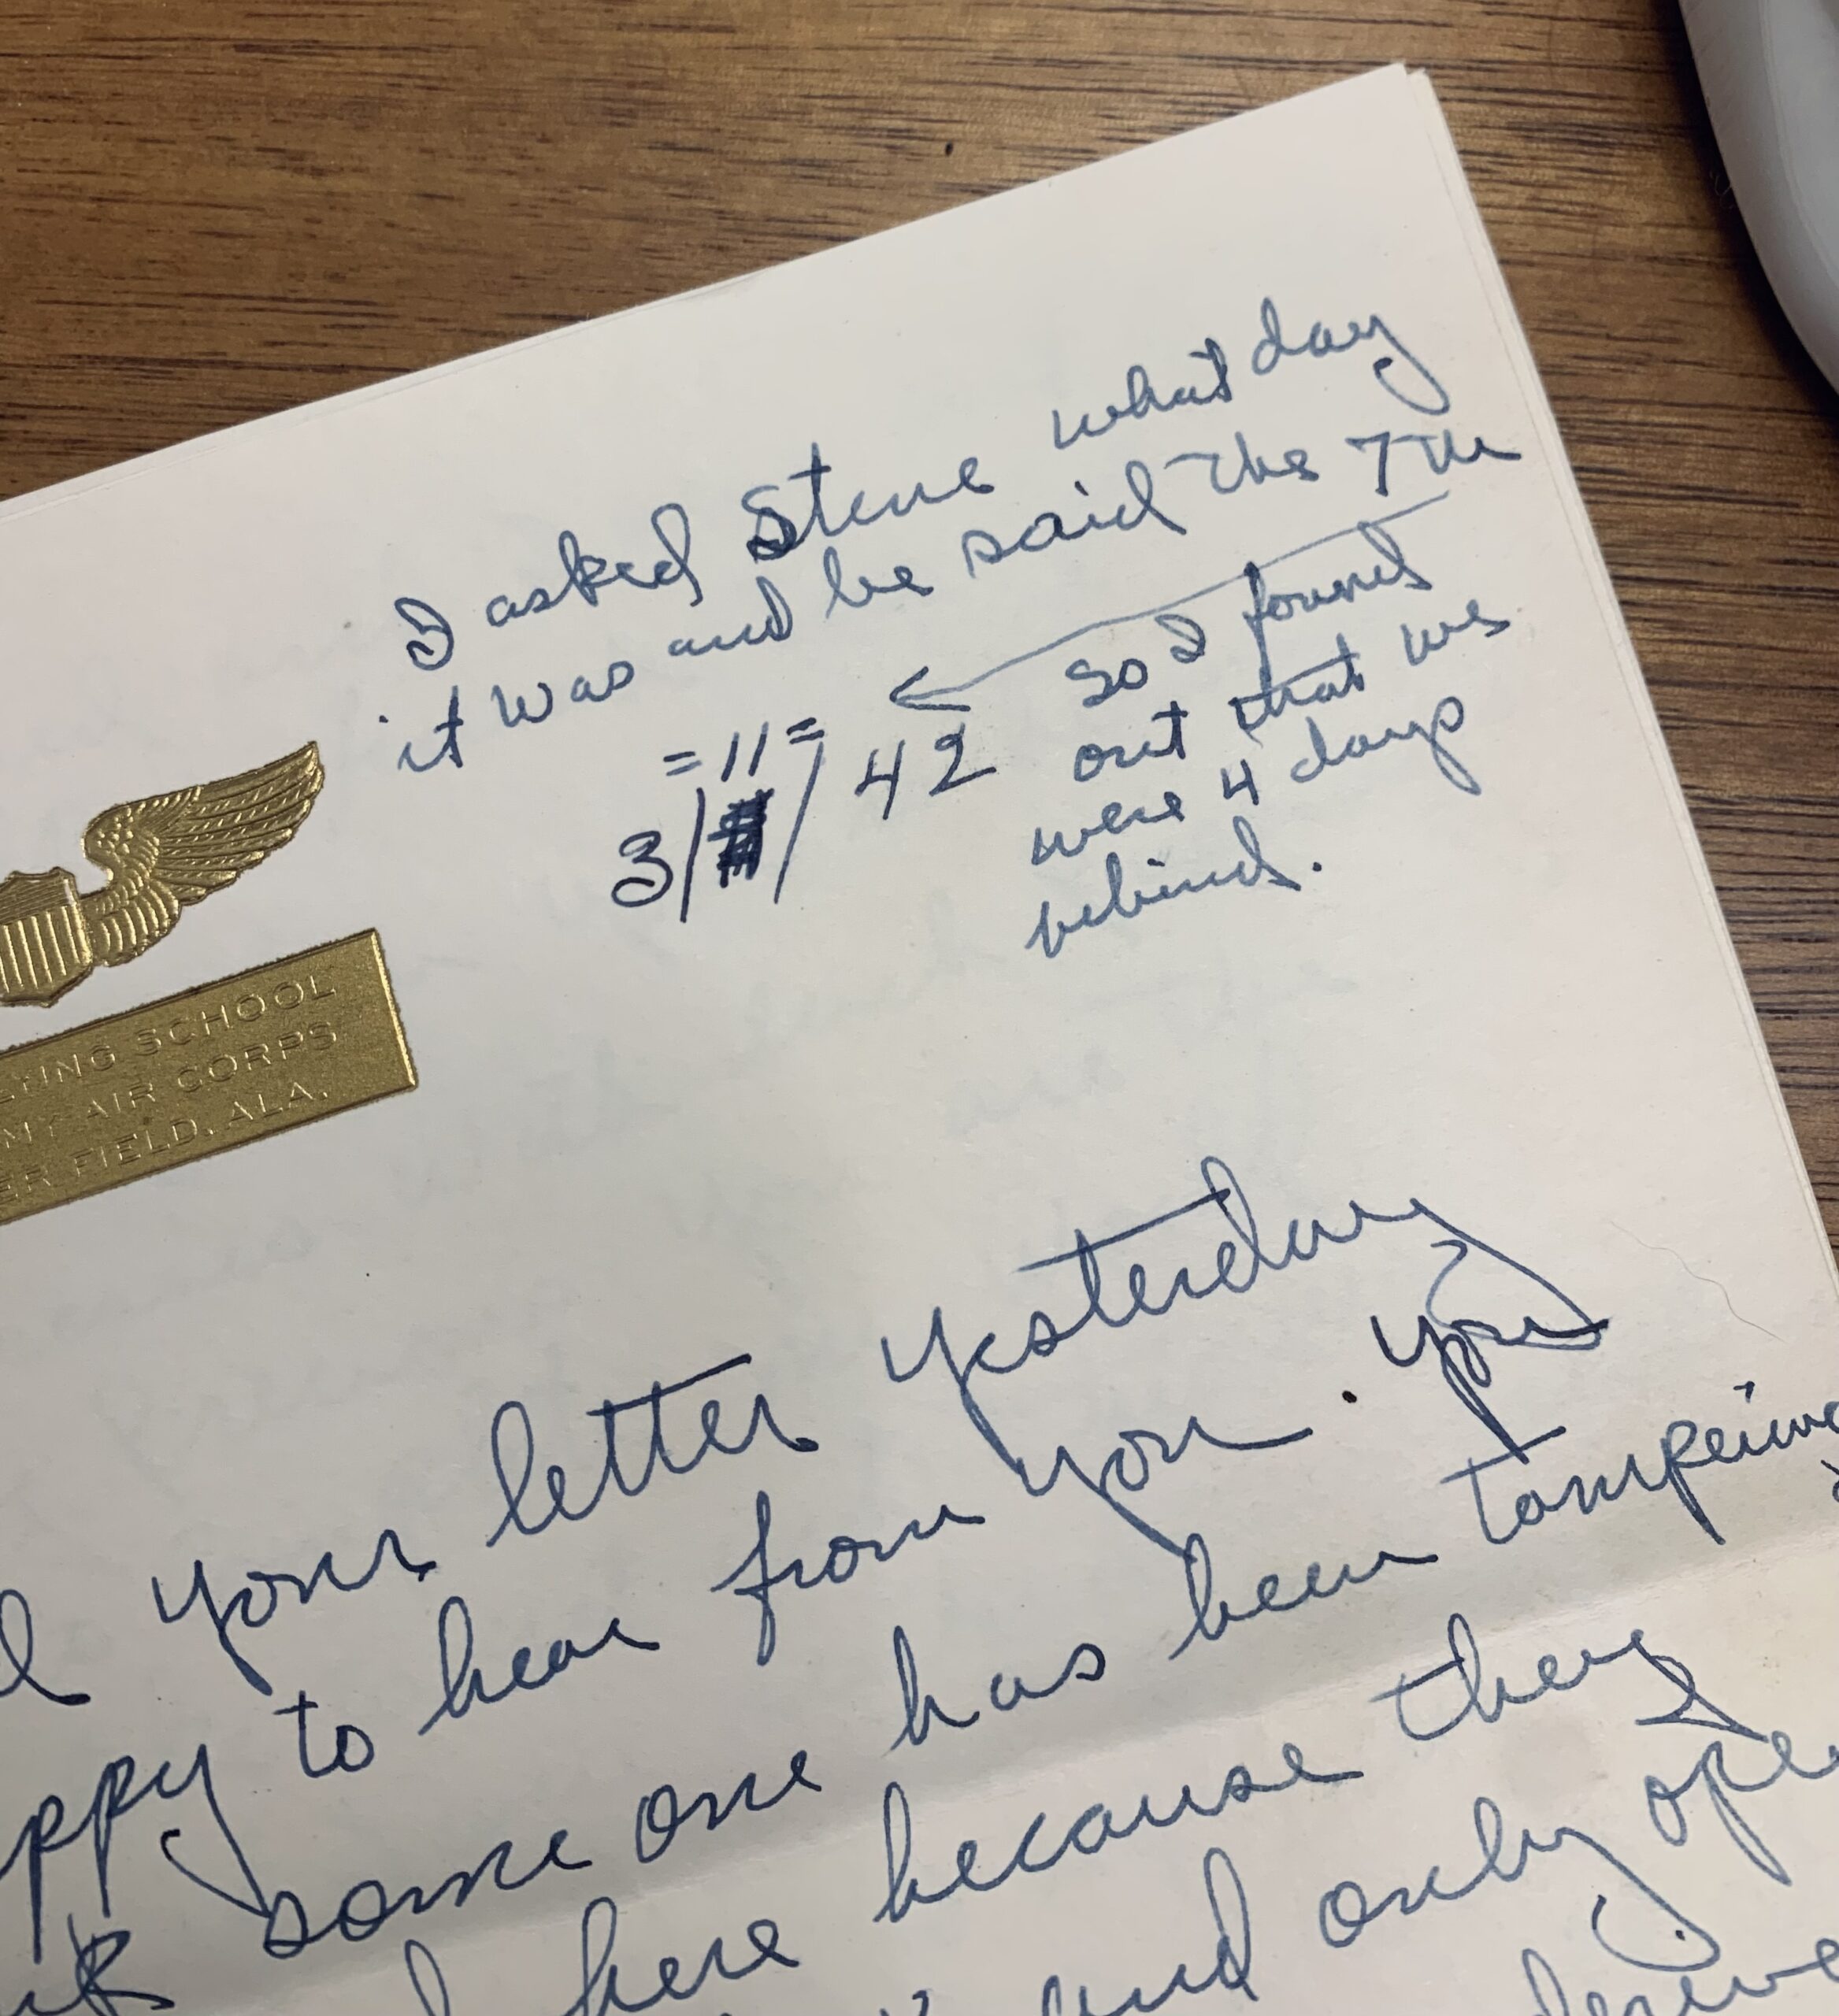 I asked Steve what day
it was and he said the 7th
so I found
out that we
were 4 days
behind.
= 11 =
3/ / 42
LYING SCHOOL
MY AIR CORPS
ER FIELD, ALA.
d your letter yesterday
ppy to hear from you. You
some one has been tampering
here because they
and only ope